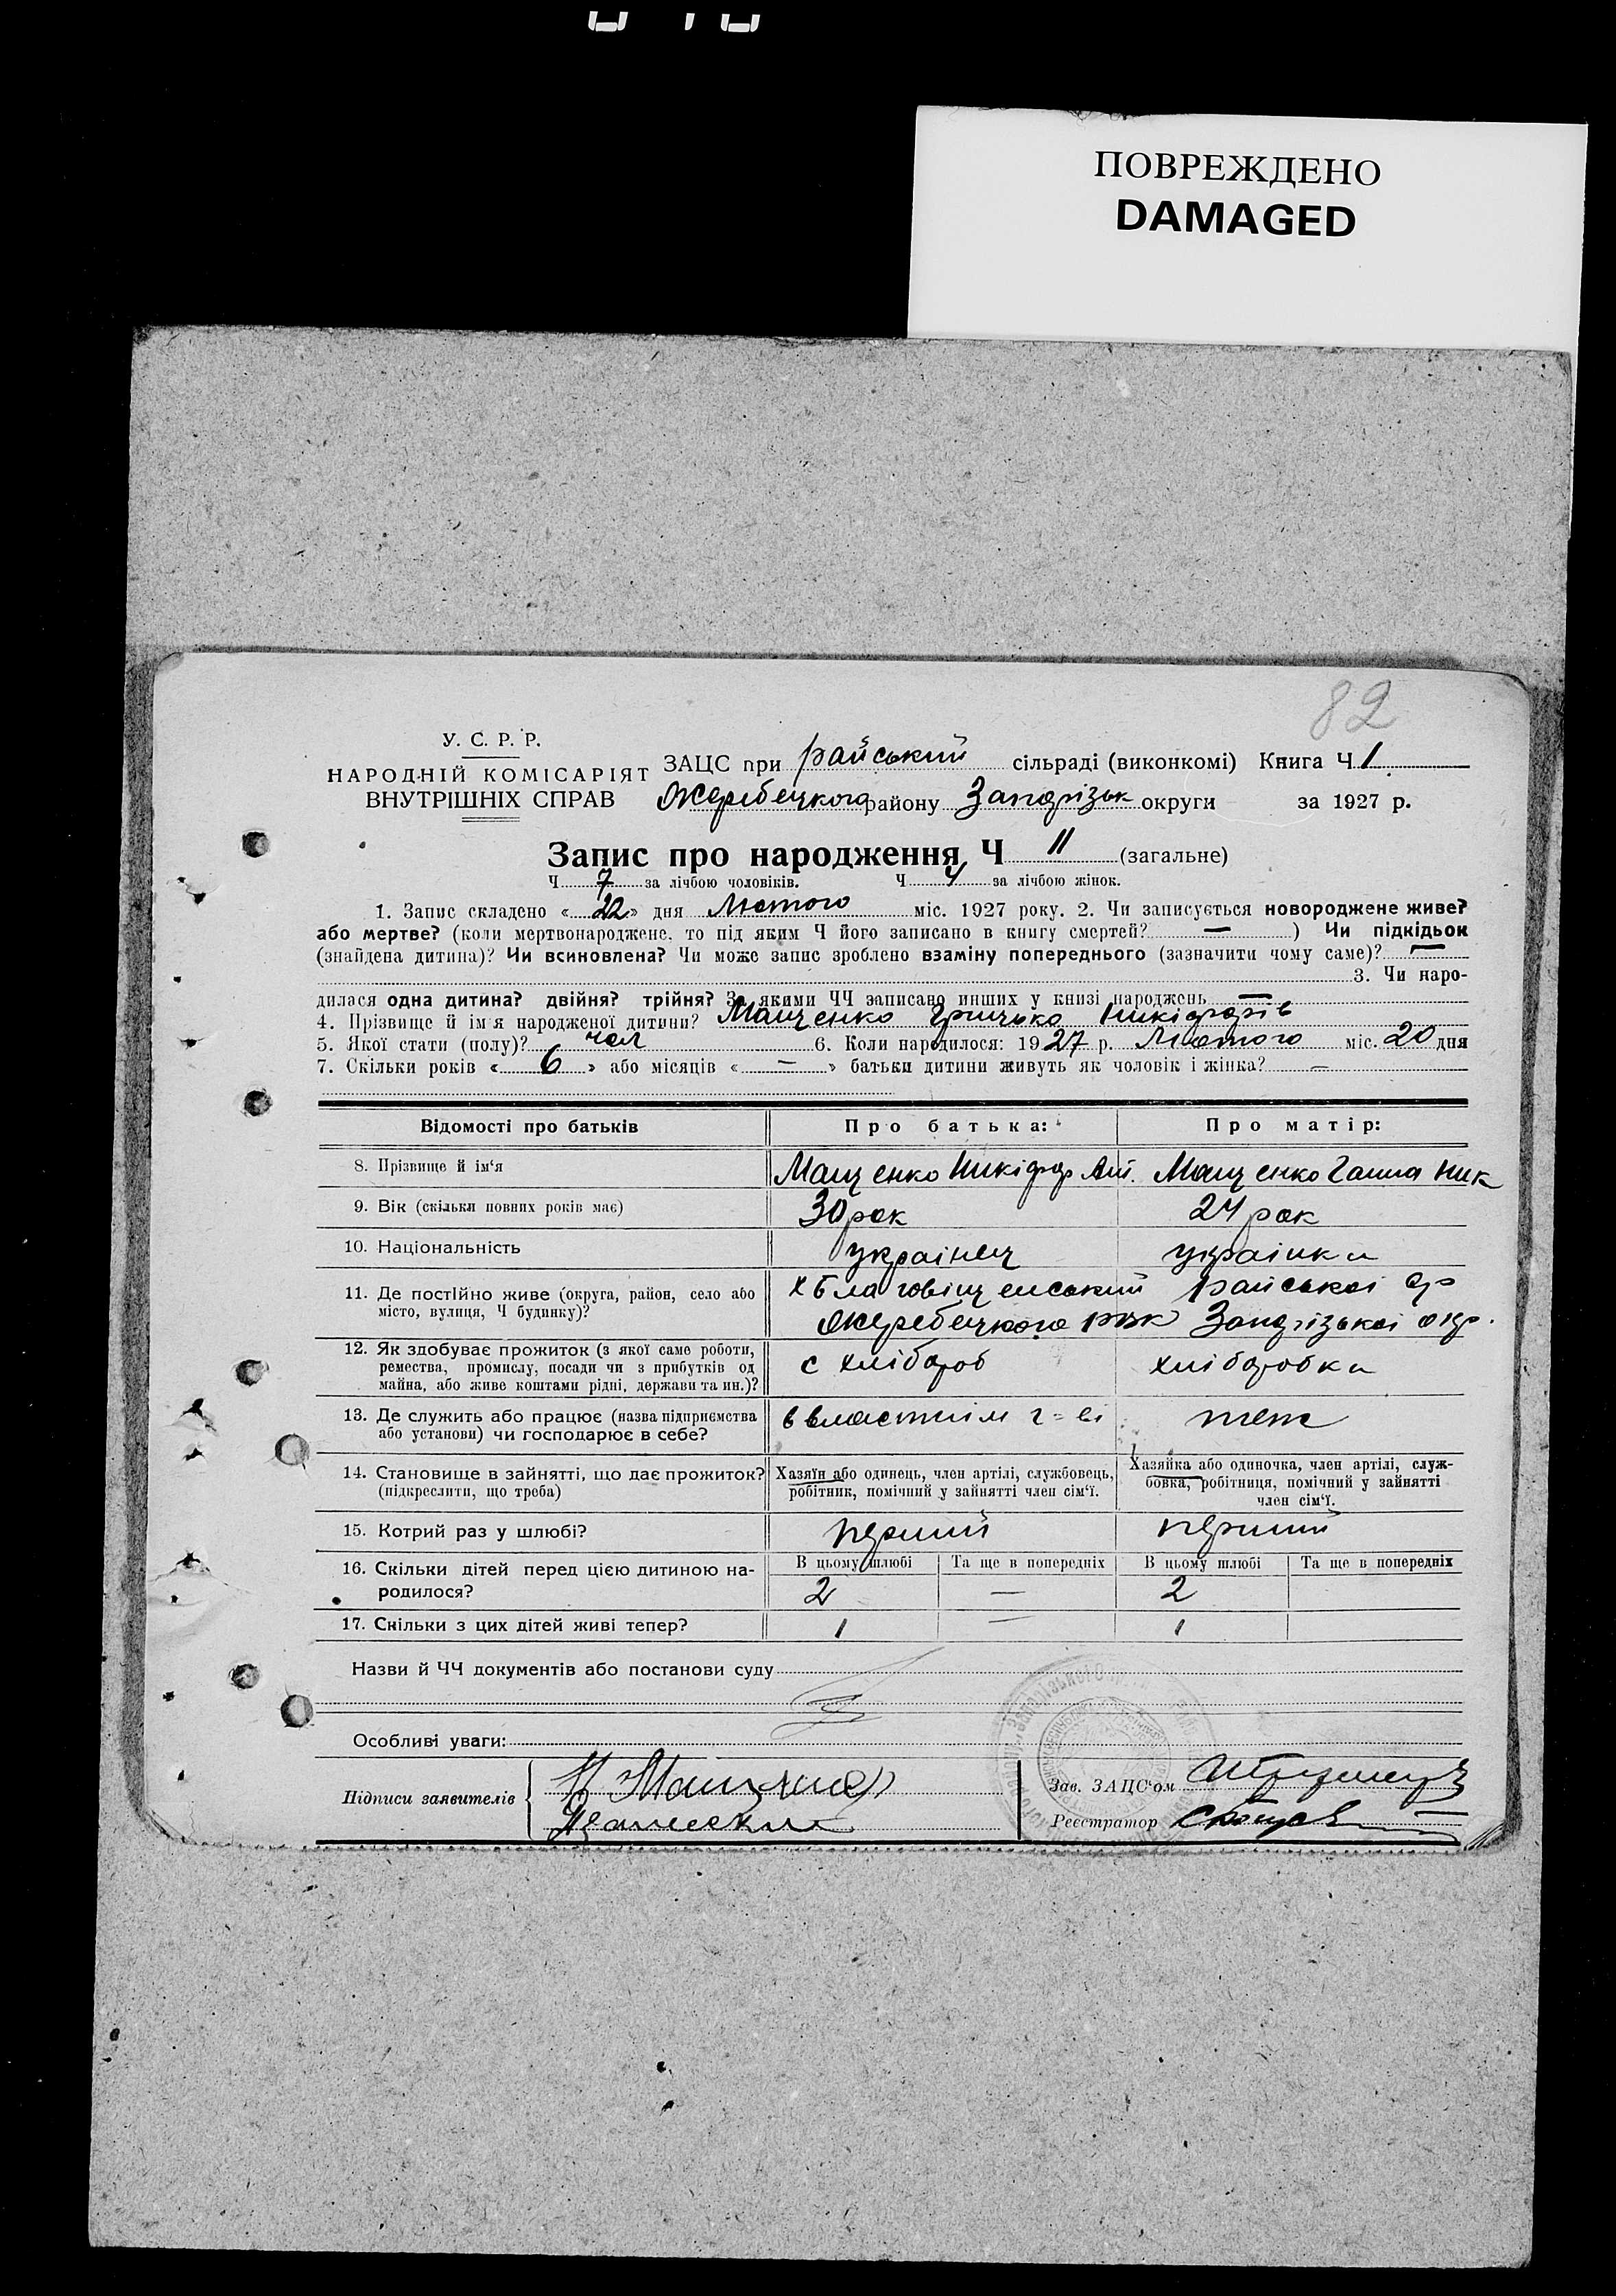 ПОВРЕЖДЕНО
DAMAGED
82
У. С. Р. Р.
НАРОДНІЙ КОМІСАРІЯТ
ВНУТРІШНІХ СПРАВ
ЗАЦС при райський сільраді (виконкомі) Книга Ч 1
Жеребецкого району Запоріжьк округи за 1927 р.
Запис про народження Ч 11 (загальне)
Ч 7 за лічбою чоловіків. Ч 4 за лічбою жінок.
1. Запис складено « 22 » дня Лютого міс. 1927 року. 2. Чи записується новороджене живе?
або мертве? (коли мертвонароджене, то під яким Ч його записано в книгу смертей? — ) Чи підкідьок
(знайдена дитина)? Чи всиновлена? Чи може запис зроблено взаміну попереднього (зазначити чому саме)? —
3. Чи наро-
дилася одна дитина? двійня? трійня? За якими ЧЧ записано инших у книзі народжень —
4. Прізвище й ім'я народженої дитини? Мащенко Грицько Никіфорів
5. Якої стати (полу)? чол 6. Коли народилося: 1927 р. Лютого міс. 20 дня
7. Скільки років « 6 » або місяців « — » батьки дитини живуть як чоловік і жінка? —
Відомості про батьків Про батька: Про матір:
8. Прізвище й ім'я Мащенко Никіфор Ант. Мащенко Ганна Ник
9. Вік (скільки повних років має) 30 рок 24 рок
10. Національність українец українка
11. Де постійно живе (округа, район, село або
місто, вулиця, Ч будинку)?
х Благовіщенський Райської ср
Жеребецкого рзк Запорізької окр.
12. Як здобуває прожиток (з якої саме роботи,
ремества, промислу, посади чи з прибутків од
майна, або живе коштами рідні, держави та ин.)?
с хлібороб хліборобка
13. Де служить або працює (назва підприємства
або установи) чи господарює в себе?
в власниім г=ві теж
14. Становище в зайнятті, що дає прожиток?
(підкреслити, що треба)
Хазяїн або одинець, член артілі, службовець,
робітник, помічний у зайнятті член сім'ї.
Хазяйка або одиночка, член артілі, служ-
бовка, робітниця, помічний у зайнятті
член сім'ї.
15. Котрий раз у шлюбі? перший перший
16. Скільки дітей перед цією дитиною на-
родилося?
В цьому шлюбі Та ще в попередніх В цьому шлюбі Та ще в попередніх
2 — 2
17. Скільки з цих дітей живі тепер? 1 — 1
Назви й ЧЧ документів або постанови суду
Особливі уваги:
Підписи заявителів
Зав. ЗАЦС'ом
Реєстратор